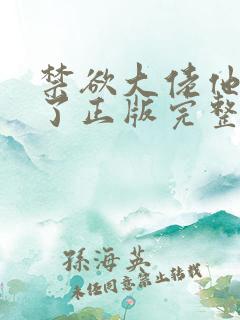 禁欲大佬他
了正版完整
孫海英
未經同意禁止轉載